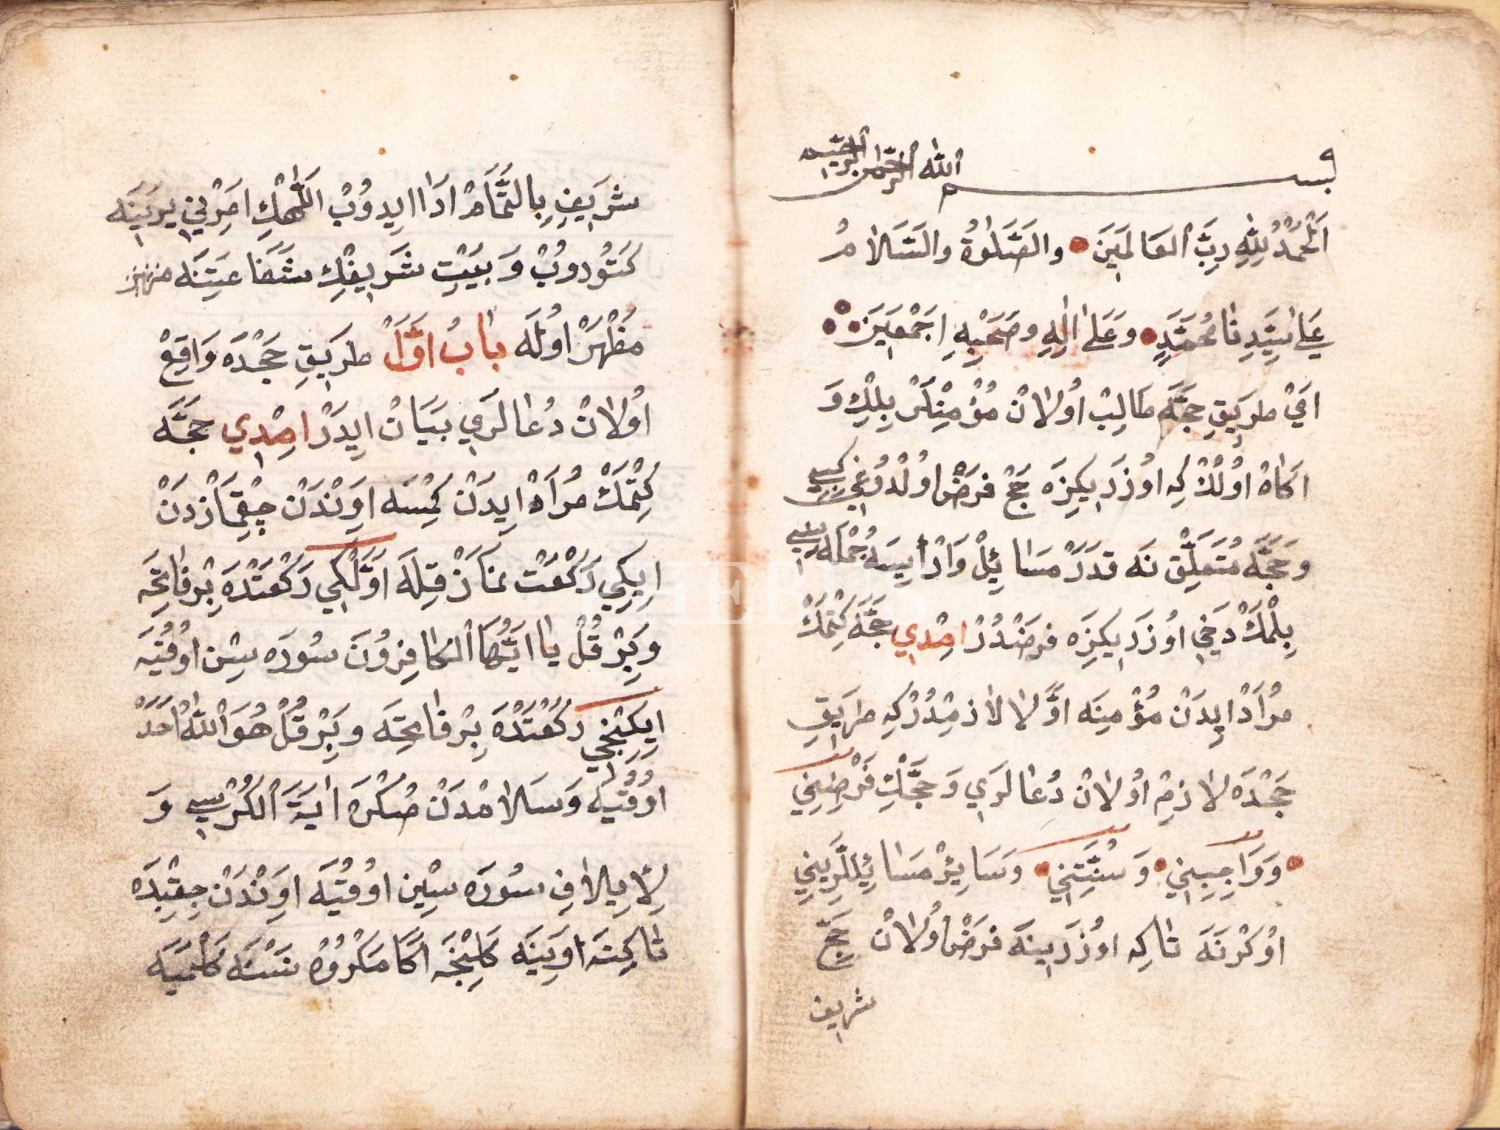 بسم الله الرحمن الرحيم
اَلْحَمْدُ لِلّٰهِ رَبِّ الْعَالَمِينَ والصَّلٰوةُ والسَّلَامُ
عَلٰى سَيِّدِنَا مُحَمَّدٍ وَعَلٰى اٰلِهِ وصَحْبِهِ اَجْمَعِينَ
اَىْ طَرِيقِ حَجَّه طَالِبْ اُولَانْ مُؤْمِنْلَرْ بِلِكْ وَ
اٰكَاهْ اُولُكْ كِه اوُزَرِيكِزَه حَجْ فَرَضْ اوُلْدُوغِى كِبِى
وَحَجَّه مُتَعَلِّقْ نَه قَدَرْ مَسَائِلْ وَارْ اِيسَه جُمْلَه سِنِى
بِلْمَكْ دَخِى اوُزَرِيكِزَه فَرَضْدُرْ اِمْدِى حَجَّه كِتْمَكْ
مُرَادْ اِيدَنْ مُؤْمِنَه اَوَّلَا لَازِمْدُرْ كِه طَرِيقِ
حَجْدَه لَازِمْ اوُلَانْ دُعَالَرِى وَحَجِّكْ فَرْضِنِى
وَوَاجِبِنِى وَسُنَّتِنِى وَسَائِرْ مَسَائِللَرِينِى
اوُكْرَنَه تَاكِه اوُزَرِينَه فَرَضْ اوُلَانْ حَجِّ
شريف
شَرِيفِ بِالتَّمَامْ اَدَا اِيدُوبْ اَللّٰهِكْ اَمْرِنِى يِرِينَه
كَتُورُوبْ وَبَيْتِ شَرِيفِكْ شَفَاعَتِنَه
مَظْهَرْ اوُلَه بَابُ اَوَّلْ طَرِيقِ حَجْدَه وَاقِعْ
اوُلَانْ دُعَالَرِى بَيَانْ اِيدَرْ اِمْدِى حَجَّه
كِتْمَكْ مُرَادْ اِيدَنْ كِمْسَه اَوِنْدَنْ چِقْمَازْدَنْ
اِيكِى رَكْعَتْ نَمَازْ قِلَه اَوَّلْكِى رَكْعَتْدَه بِرْ فَاتِحَه
وَبِرْ قُلْ يَا اَيُّهَا الْكَافِرُونَ سُورَه سِنْ اوُقُيَه
اِيكِنْجِى رَكْعَتْدَه بِرْ فَاتِحَه وَبِرْ قُلْ هُوَ اللّٰهُ اَحَدْ
اوُقُيَه وَسَلَامْدَنْ صُكْرَه اٰيَةَ الْكُرْسِى وَ
لِاِيلَافِ سُورَه سِين اوُقُيَه اَوِنْدَنْ چِقِيدَه
تَا كِنَه اَوِينَه كَلِنْجَه اَكَا مَكْرُوهْ نَسْنَه كَلْمَيَه